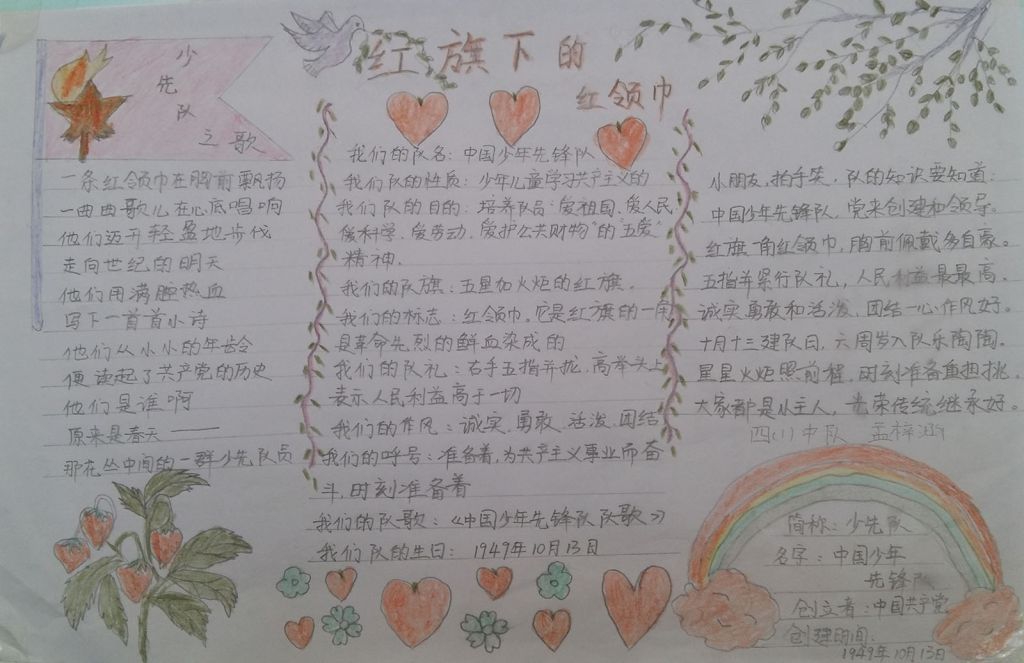 红旗下的
红领巾
少先队之歌
一条红领巾在胸前飘扬
一曲曲歌儿在心底唱响
他们迈开轻盈地步伐
走向世纪的明天
他们用满腔热血
写下一首首小诗
他们从小小的年龄
便读起了共产党的历史
他们是谁啊
原来是春天——
那花丛中间的一群少先队员
我们的队名：中国少年先锋队
我们队的性质：少年儿童学习共产主义的
我们队的目的：培养队员"爱祖国、爱人民、
爱科学、爱劳动、爱护公共财物"的"五爱"
精神.
我们的队旗：五星加火炬的红旗。
我们的标志：红领巾。它是红旗的一角
是革命先烈的鲜血染成的
我们的队礼：右手五指并拢，高举头上
表示人民利益高于一切
我们的作风：诚实、勇敢、活泼、团结
我们的呼号：准备着，为共产主义事业而奋
斗，时刻准备着
我们的队歌：《中国少年先锋队队歌》
我们队的生日：1949年10月13日
小朋友，拍手笑，队的知识要知道：
中国少年先锋队，党来创建和领导。
红旗一角红领巾，胸前佩戴多自豪。
五指并紧行队礼，人民利益最最高。
诚实勇敢和活泼，团结一心作风好。
十月十三建队日，六周岁入队乐陶陶。
星星火炬照前程，时刻准备重担挑。
大家都是小主人，光荣传统继承好。
四(1)中队 孟梓涵
简称：少先队
名字：中国少年
先锋队
创立者：中国共产党
创建时间：
1949年10月13日